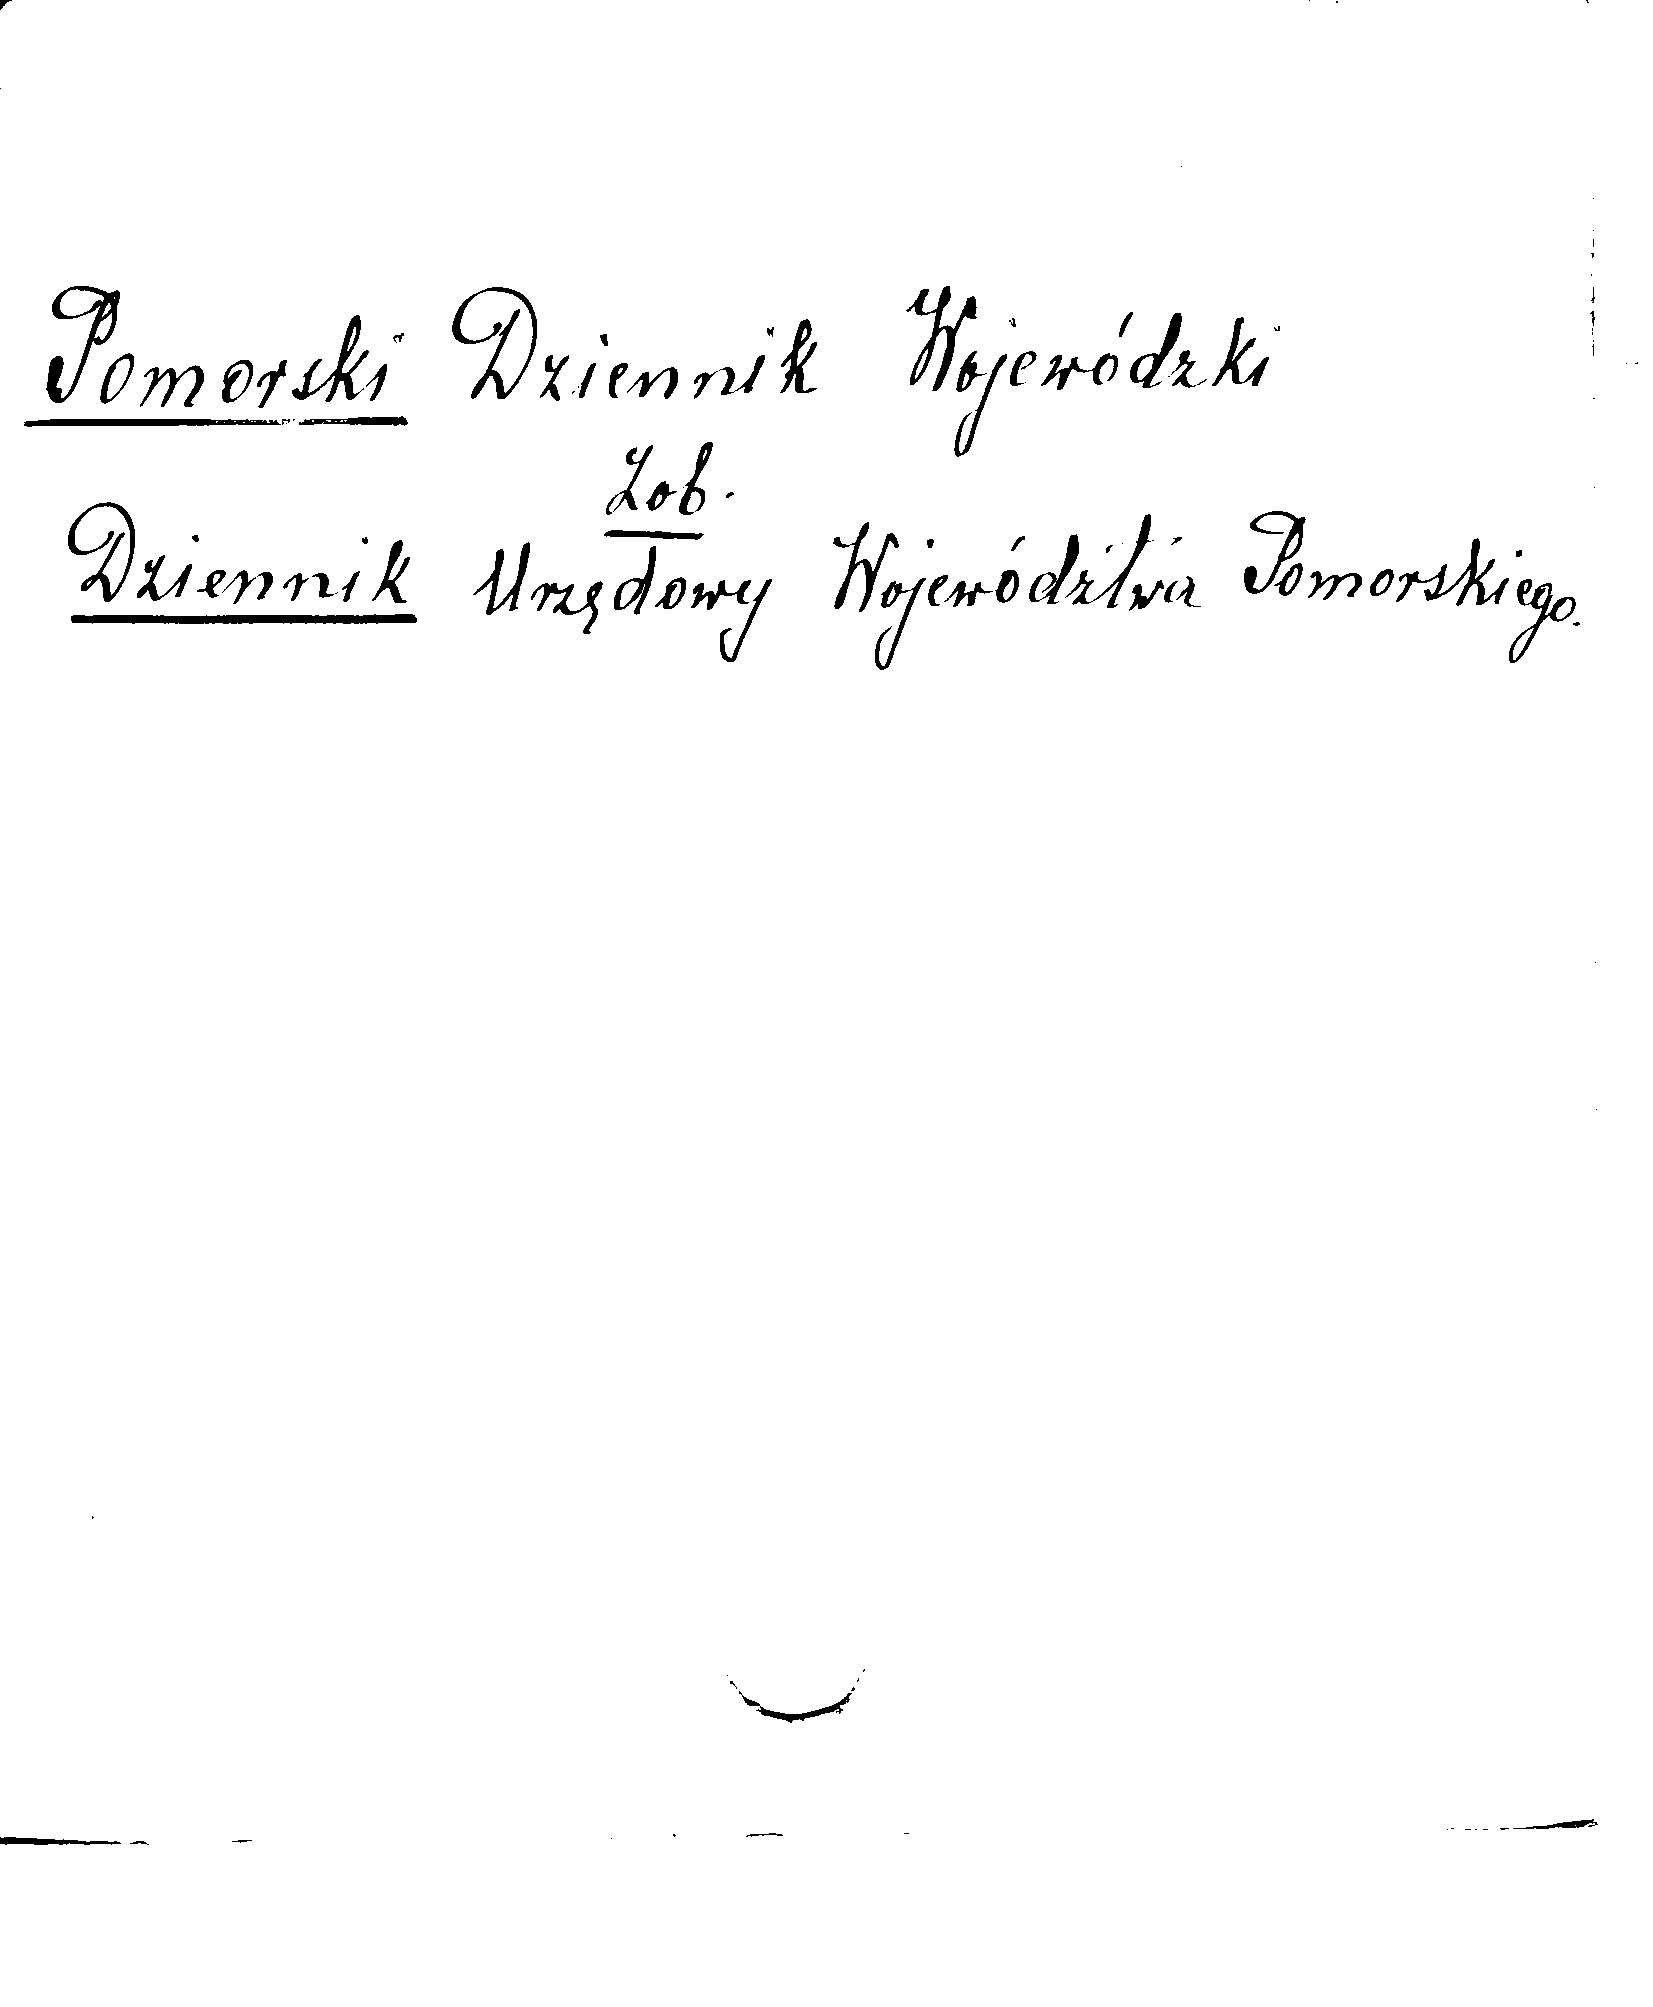 Pomorski Dziennik Wojewódzki
Zob.
Dziennik Urzędowy Województwa Pomorskiego.